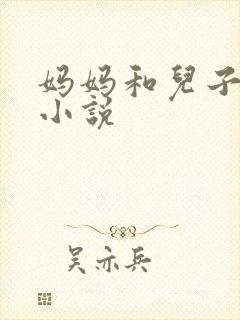 妈妈和兒子
小説
吴亦兵